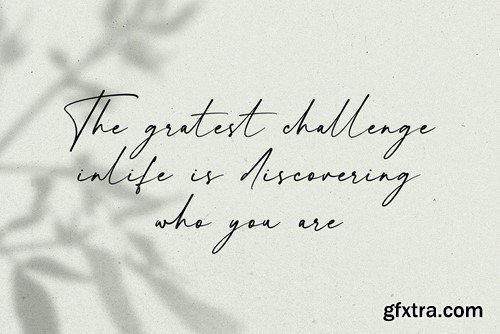 The gratest challenge
inlife is discovering
who you are
gfxtra.com